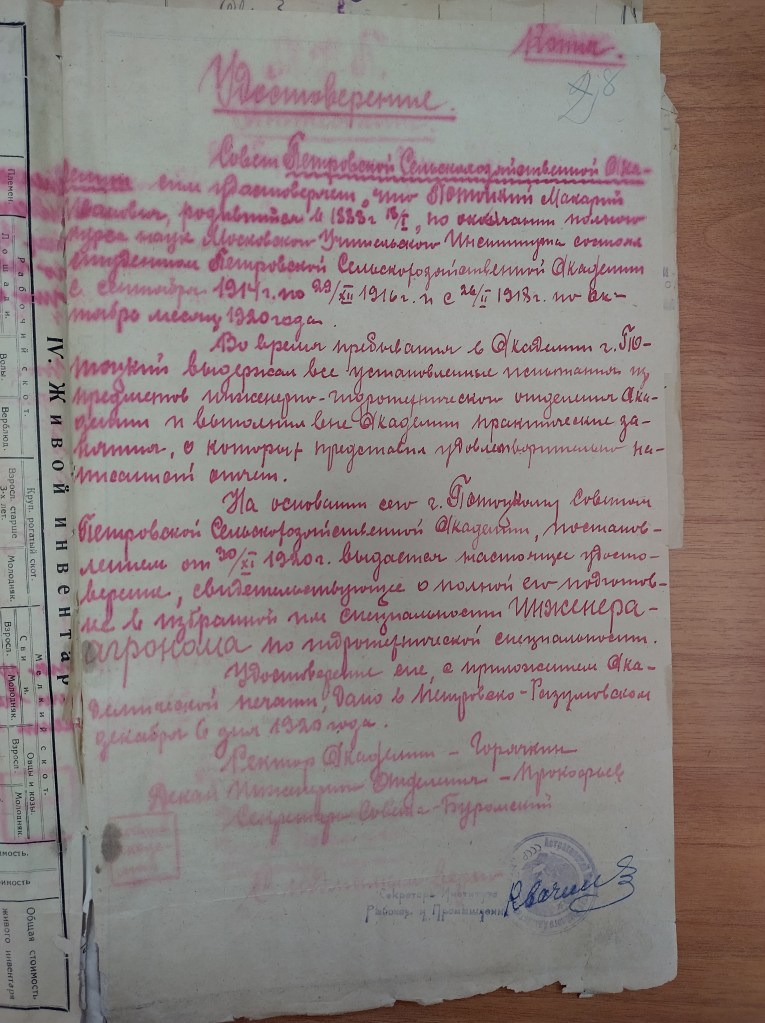 Копия.
28
Удостоверение.
Совет Петровской Сельскохозяйственной Ака-
демии сим удостоверяет, что Потоцкий Макарий
Иванович, родившийся в 1888 г 18/I, по окончании полного
курса наук Московского Учительского Института состоял
студентом Петровской Сельскохозяйственной Академии
с сентября 1914 г. по 29/XII 1916 г. и с 26/II 1918 г. по ок-
тябрь месяц 1920 года.
Во время пребывания в Академии г. По-
тоцкий выдержал все установленные испытания из
предметов инженерно-гидротехнического отделения Ака-
демии и выполнил вне Академии практические за-
нятия, о которых представил удовлетворительно на-
писанный отчет.
На основании сего г. Потоцкому Советом
Петровской Сельскохозяйственной Академии, постанов-
лением от 30/XI 1920 г. выдается настоящее удосто-
верение, свидетельствующее о полной его подготов-
ке в избранной им специальности инженера-
агронома по гидротехнической специальности.
Удостоверение сие, с приложением Ака-
демической печати, дано в Петровско-Разумовском
декабря 6 дня 1920 года.
Ректор Академии - Горячкин
Декан Инженерн Отделения - Прокофьев
Секретарь Совета - Буромский
Секретарь
Рабпрос. и Промышленн
IV. Живой инвентар
Рабочий скот.
Лошади.
Племен.
Волы.
Верблюд.
Круп. рогатый скот.
Взросл. старше 3-х лет.
Молодняк.
Мелкий скот.
Свиньи.
Взросл.
Молодняк.
Овцы и козы.
Взросл.
Молодняк.
Общая стоимость
живого инвентаря